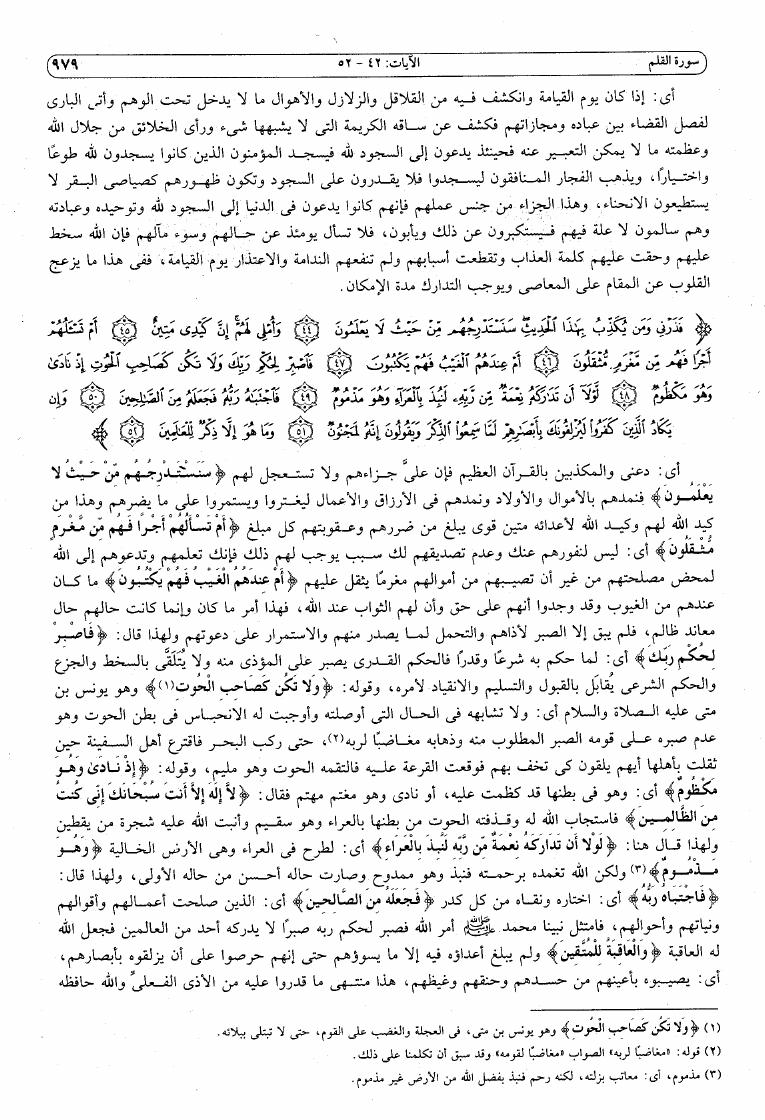 سورة القلم الآيات: ٤٢ - ٥٢ ٩٧٩
أى: إذا كان يوم القيامة وانكشف فيه من القلاقل والزلازل والأهوال ما لا يدخل تحت الوهم وأتى البارى
لفصل القضاء بين عباده ومجازاتهم فكشف عن ساقه الكريمة التى لا يشبهها شىء ورأى الخلائق من جلال الله
وعظمته ما لا يمكن التعبير عنه فحينئذ يدعون إلى السجود لله فيسجد المؤمنون الذين كانوا يسجدون لله طوعًا
واختيارًا، ويذهب الفجار المنافقون ليسجدوا فلا يقدرون على السجود وتكون ظهورهم كصياصى البقر لا
يستطيعون الانحناء، وهذا الجزاء من جنس عملهم فإنهم كانوا يدعون فى الدنيا إلى السجود لله وتوحيده وعبادته
وهم سالمون لا علة فيهم فيستكبرون عن ذلك ويأبون، فلا تسأل يومئذ عن حالهم وسوء مآلهم فإن الله سخط
عليهم وحقت عليهم كلمة العذاب وتقطعت أسبابهم ولم تنفعهم الندامة والاعتذار يوم القيامة، ففى هذا ما يزعج
القلوب عن المقام على المعاصى ويوجب التدارك مدة الإمكان.
﴿ فَذَرْنِى وَمَن يُكَذِّبُ بِهَٰذَا الْحَدِيثِ سَنَسْتَدْرِجُهُم مِّنْ حَيْثُ لَا يَعْلَمُونَ ٤٤ وَأُمْلِى لَهُمْ إِنَّ كَيْدِى مَتِينٌ ٤٥ أَمْ تَسْأَلُهُمْ
أَجْرًا فَهُم مِّن مَّغْرَمٍ مُّثْقَلُونَ ٤٦ أَمْ عِندَهُمُ الْغَيْبُ فَهُمْ يَكْتُبُونَ ٤٧ فَاصْبِرْ لِحُكْمِ رَبِّكَ وَلَا تَكُن كَصَاحِبِ الْحُوتِ إِذْ نَادَىٰ
وَهُوَ مَكْظُومٌ ٤٨ لَّوْلَا أَن تَدَارَكَهُ نِعْمَةٌ مِّن رَّبِّهِ لَنُبِذَ بِالْعَرَاءِ وَهُوَ مَذْمُومٌ ٤٩ فَاجْتَبَاهُ رَبُّهُ فَجَعَلَهُ مِنَ الصَّالِحِينَ ٥٠ وَإِن
يَكَادُ الَّذِينَ كَفَرُوا لَيُزْلِقُونَكَ بِأَبْصَارِهِمْ لَمَّا سَمِعُوا الذِّكْرَ وَيَقُولُونَ إِنَّهُ لَمَجْنُونٌ ٥١ وَمَا هُوَ إِلَّا ذِكْرٌ لِّلْعَالَمِينَ ٥٢ ﴾
أى: دعنى والمكذبين بالقرآن العظيم فإن علىَّ جزاءهم ولا تستعجل لهم ﴿سَنَسْتَدْرِجُهُم مِّنْ حَيْثُ لا
يَعْلَمُونَ﴾ فنمدهم بالأموال والأولاد ونمدهم فى الأرزاق والأعمال ليغتروا ويستمروا على ما يضرهم وهذا من
كيد الله لهم وكيد الله لأعدائه متين قوى يبلغ من ضررهم وعقوبتهم كل مبلغ ﴿أَمْ تَسْأَلُهُمْ أَجْرًا فَهُم مِّن مَّغْرَمٍ
مُّثْقَلُونَ﴾ أى: ليس لنفورهم عنك وعدم تصديقهم لك سبب يوجب لهم ذلك فإنك تعلمهم وتدعوهم إلى الله
لمحض مصلحتهم من غير أن تصيبهم من أموالهم مغرمًا يثقل عليهم ﴿أَمْ عِندَهُمُ الْغَيْبُ فَهُمْ يَكْتُبُونَ﴾ ما كان
عندهم من الغيوب وقد وجدوا أنهم على حق وأن لهم الثواب عند الله، فهذا أمر ما كان وإنما كانت حالهم حال
معاند ظالم، فلم يبق إلا الصبر لأذاهم والتحمل لما يصدر منهم والاستمرار على دعوتهم ولهذا قال: ﴿فَاصْبِرْ
لِحُكْمِ رَبِّكَ﴾ أى: لما حكم به شرعًا وقدرًا فالحكم القدرى يصبر على المؤذى منه ولا يُتَلَقَّى بالسخط والجزع
والحكم الشرعى يُقابَل بالقبول والتسليم والانقياد لأمره، وقوله: ﴿وَلا تَكُن كَصَاحِبِ الْحُوتِ(١)﴾ وهو يونس بن
متى عليه الصلاة والسلام أى: ولا تشابهه فى الحال التى أوصلته وأوجبت له الانحباس فى بطن الحوت وهو
عدم صبره على قومه الصبر المطلوب منه وذهابه مغاضبًا لربه(٢)، حتى ركب البحر فاقترع أهل السفينة حين
ثقلت بأهلها أيهم يلقون كى تخف بهم فوقعت القرعة عليه فالتقمه الحوت وهو مليم، وقوله: ﴿إِذْ نَادَىٰ وَهُوَ
مَكْظُومٌ﴾ أى: وهو فى بطنها قد كظمت عليه، أو نادى وهو مغتم مهتم فقال: ﴿لا إِلَهَ إِلاَّ أَنتَ سُبْحَانَكَ إِنِّى كُنتُ
مِنَ الظَّالِمِينَ﴾ فاستجاب الله له وقذفته الحوت من بطنها بالعراء وهو سقيم وأنبت الله عليه شجرة من يقطين
ولهذا قال هنا: ﴿لَوْلا أَن تَدَارَكَهُ نِعْمَةٌ مِّن رَّبِّهِ لَنُبِذَ بِالْعَرَاءِ﴾ أى: لطرح فى العراء وهى الأرض الخالية ﴿وَهُوَ
مَذْمُومٌ﴾(٣) ولكن الله تغمده برحمته فنبذ وهو ممدوح وصارت حاله أحسن من حاله الأولى، ولهذا قال:
﴿فَاجْتَبَاهُ رَبُّهُ﴾ أى: اختاره ونقاه من كل كدر ﴿فَجَعَلَهُ مِنَ الصَّالِحِينَ﴾ أى: الذين صلحت أعمالهم وأقوالهم
ونياتهم وأحوالهم، فامتثل نبينا محمد ﷺ أمر الله فصبر لحكم ربه صبرًا لا يدركه أحد من العالمين فجعل الله
له العاقبة ﴿وَالْعَاقِبَةُ لِلْمُتَّقِينَ﴾ ولم يبلغ أعداؤه فيه إلا ما يسوؤهم حتى إنهم حرصوا على أن يزلقوه بأبصارهم،
أى: يصيبوه بأعينهم من حسدهم وحنقهم وغيظهم، هذا منتهى ما قدروا عليه من الأذى الفعلىِّ والله حافظه
(١) ﴿وَلا تَكُن كَصَاحِبِ الْحُوتِ﴾ وهو يونس بن متى، فى العجلة والغضب على القوم، حتى لا تبتلى ببلائه.
(٢) قوله: «مغاضبًا لربه» الصواب «مغاضبًا لقومه» وقد سبق أن تكلمنا على ذلك.
(٣) مذموم، أى: معاتب بزلته، لكنه رحم فنبذ بفضل الله من الأرض غير مذموم.